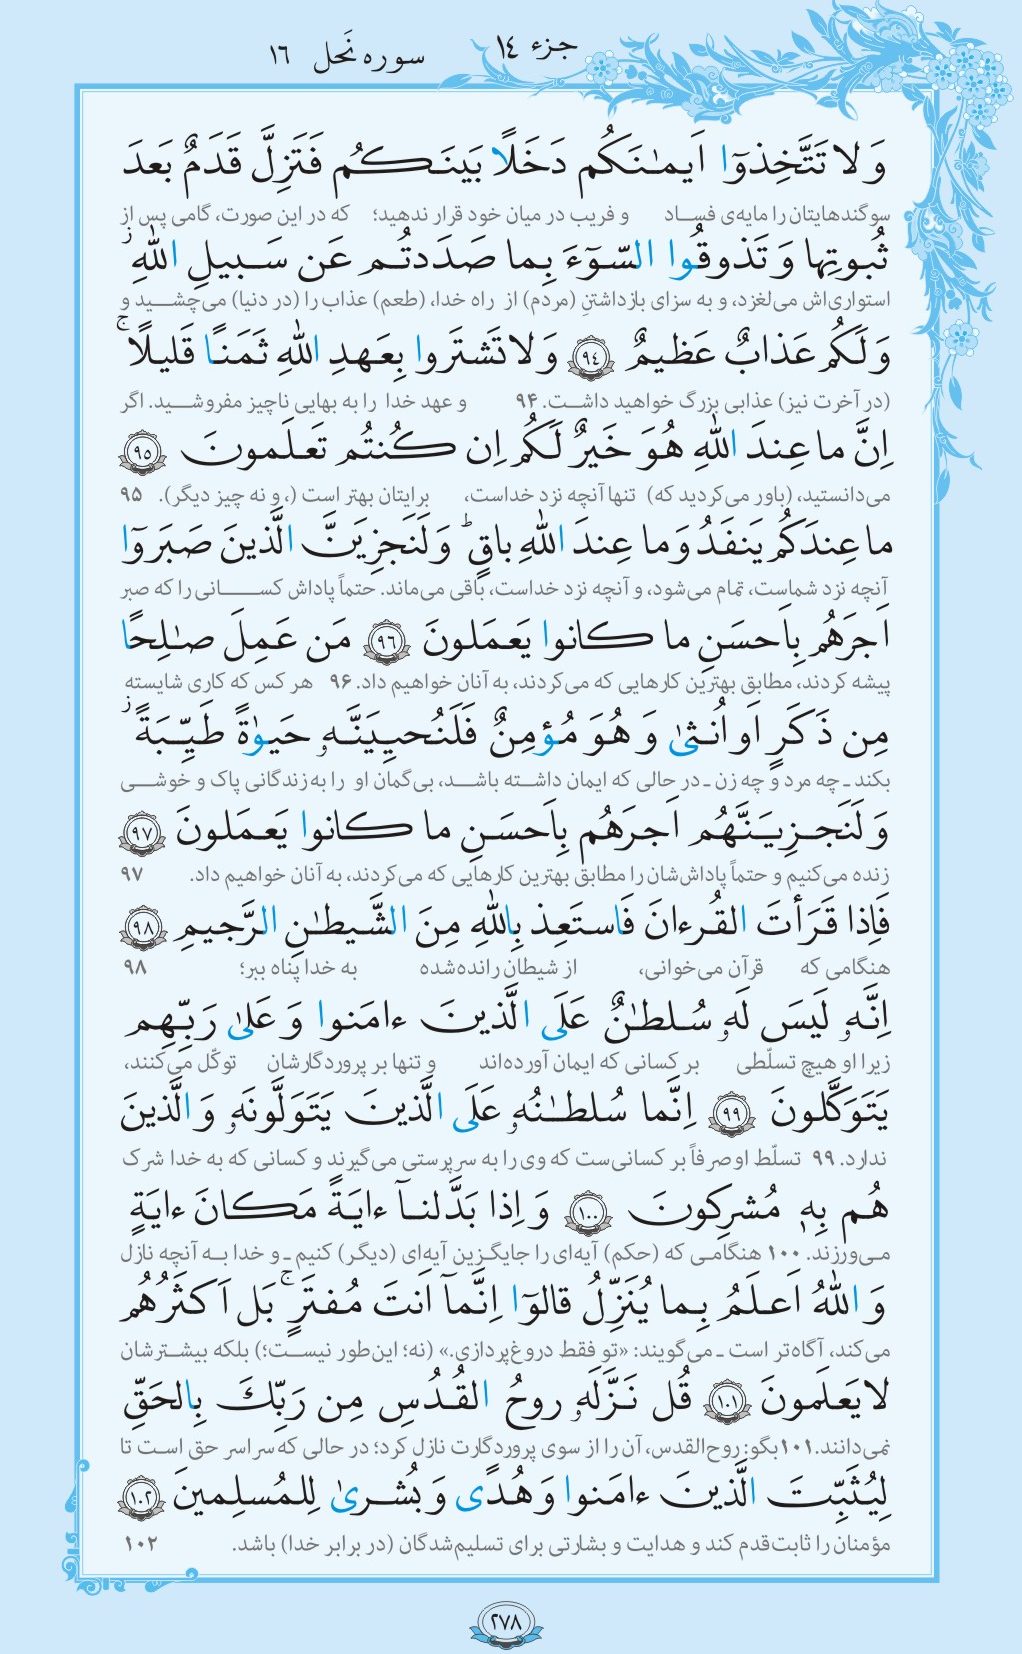 جزء ١٤
سوره نَحل ١٦
وَ لا تَتَّخِذوٓا اَیمـٰنَکُم دَخَلًا بَینَـکُم فَتَزِلَّ قَدَمٌ بَعدَ
سوگندهایتان را مایه‌ی فسـاد و فریب در میان خود قرار ندهید؛ که در این صورت، گامی پس از
ثُبوتِها وَ تَذوقُوا السّوٓءَ بِما صَدَدتُم عَن سَبیلِ اللهِ ز
استواری‌اش می‌لغزد، و به سزای بازداشتنِ (مردم) از راه خدا، (طعم) عذاب را (در دنیا) می‌چشـید و
وَ لَکُم عَذابٌ عَظیمٌ ٩٤ وَ لا تَشتَروا بِعَهدِ اللهِ ثَمَنًا قَلیلًا ج
(در آخرت نیز) عذابی بزرگ خواهید داشـت. ۹۴ و عهد خدا را به بهایی ناچیز مفروشـید. اگر
اِنَّ ما عِندَ اللهِ هُوَ خَیرٌ لَکُم اِن کُنتُم تَعلَمونَ ٩٥
می‌دانستید، (باور می‌کردید که) تنها آنچه نزد خداست، برایتان بهتر است (، و نه چیز دیگر). ۹۵
ما عِندَکُم یَنفَدُ وَ ما عِندَ اللهِ باقٍ ط وَ لَنَجزِیَنَّ الَّذینَ صَبَروٓا
آنچه نزد شماست، تمام می‌شود، و آنچه نزد خداست، باقی می‌ماند. حتماً پاداش کسـانی را که صبر
اَجرَهُم بِاَحسَنِ ما کانوا یَعمَلونَ ٩٦ مَن عَمِلَ صـٰلِحًا
پیشه کردند، مطابق بهترین کارهایی که می‌کردند، به آنان خواهیم داد. ۹۶ هر کس که کاری شایسته
مِن ذَکَرٍ اَو اُنثیٰ وَ هُوَ مُؤمِنٌ فَلَنُحیِیَنَّهٗ حَیوٰةً طَیِّبَةً ز
بکند ـ چه مرد و چه زن ـ در حالی که ایمان داشـته باشـد، بی‌گمان او را به زندگانی پاک و خوشـی
وَ لَنَجزِیَنَّهُم اَجرَهُم بِاَحسَنِ ما کانوا یَعمَلونَ ٩٧
زنده می‌کنیم و حتماً پاداش‌شان را مطابق بهترین کارهایی که می‌کردند، به آنان خواهیم داد. ۹۷
فَاِذا قَرَأتَ القُرءانَ فَاستَعِذ بِاللهِ مِنَ الشَّیطـٰنِ الرَّجیمِ ٩٨
هنگامی که قرآن می‌خوانی، از شیطان رانده‌شده به خدا پناه ببر؛ ۹۸
اِنَّهٗ لَیسَ لَهٗ سُلطـٰنٌ عَلَی الَّذینَ ءامَنوا وَ عَلیٰ رَبِّهِم
زیرا او هیچ تسلّطی بر کسانی که ایمان آورده‌اند و تنها بر پروردگارشان توکّل می‌کنند،
یَتَوَکَّلونَ ٩٩ اِنَّما سُلطـٰنُهٗ عَلَی الَّذینَ یَتَوَلَّونَهٗ وَ الَّذینَ
ندارد. ۹۹ تسلّط او صرفاً بر کسانی‌ست که وی را به سرپرستی می‌گیرند و کسانی که به خدا شرک
هُم بِهٖ مُشرِکونَ ١٠٠ وَ اِذا بَدَّلنـآ ءایَةً مَکانَ ءایَةٍ
مـی‌ورزند. ۱۰۰ هنگامـی که (حکم) آیه‌ای را جایگـزین آیه‌ای (دیگر) کنیم ـ و خدا بـه آنچه نازل
وَ اللهُ اَعلَمُ بِما یُنَزِّلُ قالوٓا اِنَّمآ اَنتَ مُفتَرٍ ج بَل اَکثَرُهُم
می‌کند، آگاه‌تر است ـ می‌گویند: «تو فقط دروغ‌پردازی.» (نه؛ این‌طور نیسـت؛) بلکه بیشـترشان
لا یَعلَمونَ ١٠١ قُل نَزَّلَهٗ روحُ القُدُسِ مِن رَبِّكَ بِالحَقِّ
نمی‌دانند. ۱۰۱ بگو: روح‌القدس، آن را از سوی پروردگارت نازل کرد؛ در حالی که سراسر حق اسـت تا
لِیُثَبِّتَ الَّذینَ ءامَنوا وَ هُدًی وَ بُشریٰ لِلمُسلِمینَ ١٠٢
مؤمنان را ثابت‌قدم کند و هدایت و بشارتی برای تسلیم‌شدگان (در برابر خدا) باشد. ۱۰۲
٢٧٨